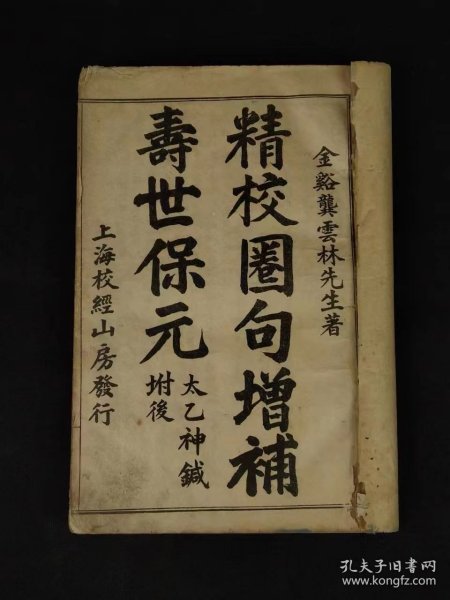 金谿龔雲林先生著
精校圈句增補
壽世保元
太乙神鍼
坿後
上海校經山房發行
孔夫子旧书网
www.kongfz.com